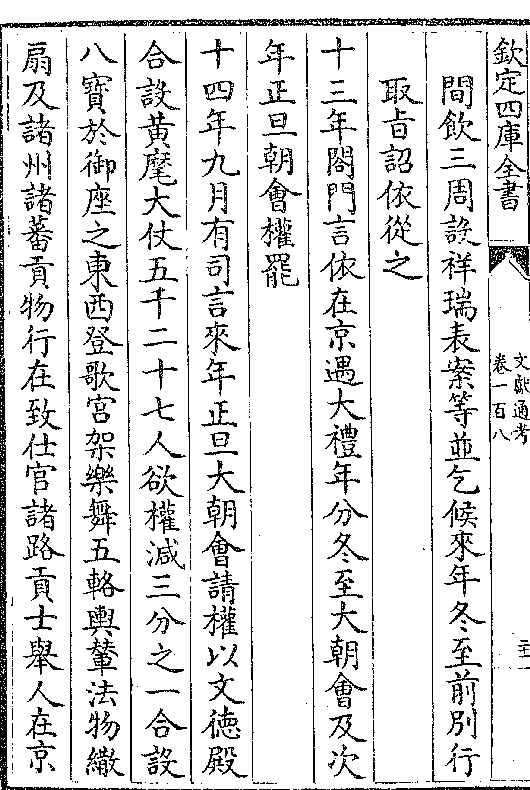 欽定四庫全書
文獻通考
卷一百八
間飲三周設祥瑞表案等並乞候來年冬至前别行
取旨詔依從之
十三年閤門言依在京遇大禮年分冬至大朝會及次
年正旦朝會權罷
十四年九月有司言來年正旦大朝會請權以文德殿
合設黄麾大仗五千二十七人欲權減三分之一合設
八寶於御座之東西登歌宫架樂舞五輅輿輦法物繖
扇及諸州諸蕃貢物行在致仕官諸路貢士舉人在京